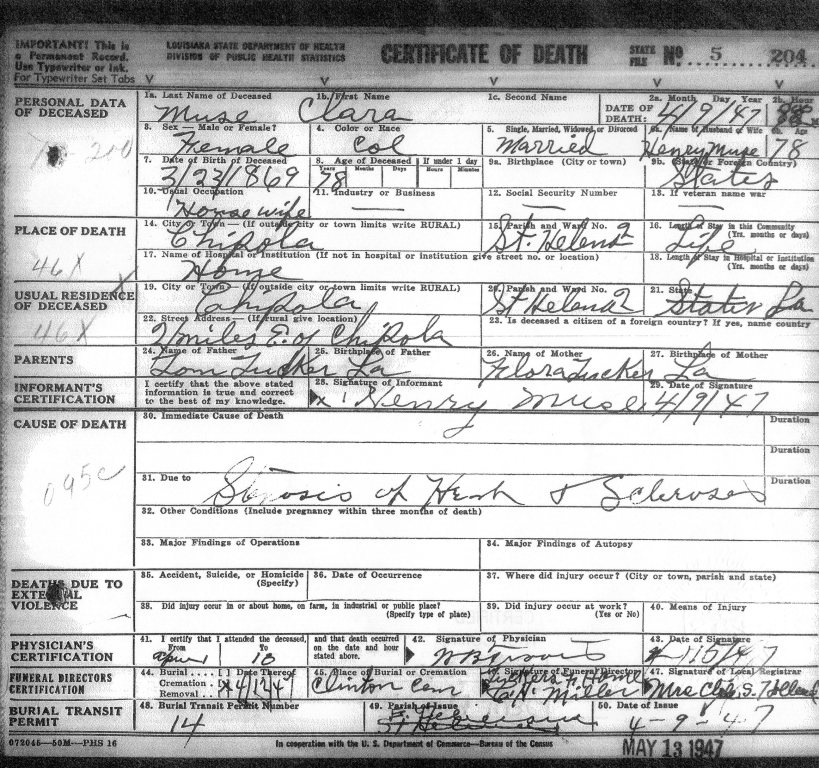 IMPORTANT! This is a Permanent Record. Use Typewriter or Ink. For Typewriter Set Tabs
LOUISIANA STATE DEPARTMENT OF HEALTH
DIVISION OF PUBLIC HEALTH STATISTICS
CERTIFICATE OF DEATH
STATE FILE No 5 204
PERSONAL DATA OF DECEASED
1a. Last Name of Deceased
Muse
1b. First Name
Clara
1c. Second Name
DATE OF DEATH:
2a. Month Day Year
4/9/47
2b. Hour
3. Sex — Male or Female?
Female
4. Color or Race
Col
5. Single, Married, Widowed, or Divorced
Married
6a. Name of Husband or Wife
Henry Muse
6b. Age
78
7. Date of Birth of Deceased
3/23/1869
8. Age of Deceased
Years Months Days
78
If under 1 day
Hours Minutes
9a. Birthplace (City or town)
9b. (State or Foreign Country)
States
10. Usual Occupation
Housewife
11. Industry or Business
—
12. Social Security Number
—
13. If veteran name war
—
PLACE OF DEATH
46X
14. City or Town — (If outside city or town limits write RURAL)
Chipola
15. Parish and Ward No.
St. Helena 2
16. Length of Stay in this Community
(Yrs. months or days)
Life
17. Name of Hospital or Institution (If not in hospital or institution give street no. or location)
Home
18. Length of Stay in Hospital or Institution
(Yrs. months or days)
USUAL RESIDENCE OF DECEASED
46X
19. City or Town — (If outside city or town limits write RURAL)
Chipola
20. Parish and Ward No.
St Helena 2
21. State
States La
22. Street Address — (If rural give location)
2 miles E. of Chipola
23. Is deceased a citizen of a foreign country? If yes, name country
PARENTS
24. Name of Father
Tom Tucker
25. Birthplace of Father
La
26. Name of Mother
Flora Tucker
27. Birthplace of Mother
La
INFORMANT'S CERTIFICATION
I certify that the above stated information is true and correct to the best of my knowledge.
28. Signature of Informant
x Henry Muse
29. Date of Signature
4/9/47
CAUSE OF DEATH
095c
30. Immediate Cause of Death
Duration
Duration
31. Due to
Stenosis of Heart &
Duration
32. Other Conditions (Include pregnancy within three months of death)
33. Major Findings of Operations
34. Major Findings of Autopsy
DEATHS DUE TO EXTERNAL VIOLENCE
35. Accident, Suicide, or Homicide
(Specify)
36. Date of Occurrence
37. Where did injury occur? (City or town, parish and state)
38. Did injury occur in or about home, on farm, in industrial or public place?
(Specify type of place)
39. Did injury occur at work?
(Yes or No)
40. Means of Injury
PHYSICIAN'S CERTIFICATION
41. I certify that I attended the deceased,
From To
and that death occurred on the date and hour stated above.
42. Signature of Physician
43. Date of Signature
FUNERAL DIRECTORS CERTIFICATION
44. Burial.... [ ] Date Thereof
Cremation
Removal
45. Place of Burial or Cremation
Clinton Cem
46. Signature of Funeral Director
Miller
47. Signature of Local Registrar
BURIAL TRANSIT PERMIT
48. Burial Transit Permit Number
14
49. Parish of Issue
50. Date of Issue
4-9-47
072045—50M—PHS 16
In cooperation with the U. S. Department of Commerce—Bureau of the Census
MAY 13 1947